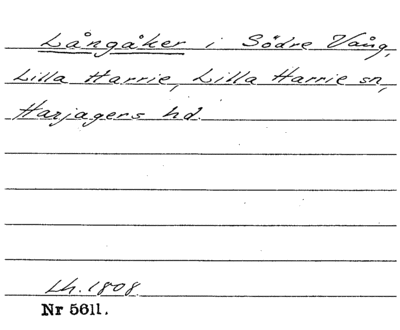 Långåker i Södre Vång,
Lilla Harrie, Lilla Harrie sn,
Harjagers hd.
Lh. 1808.
Nr 5611.